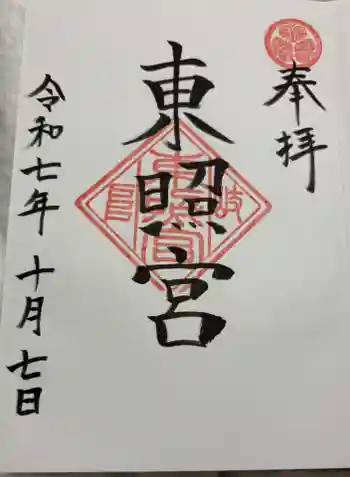 奉拝
東照宮
令和七年 十月七日